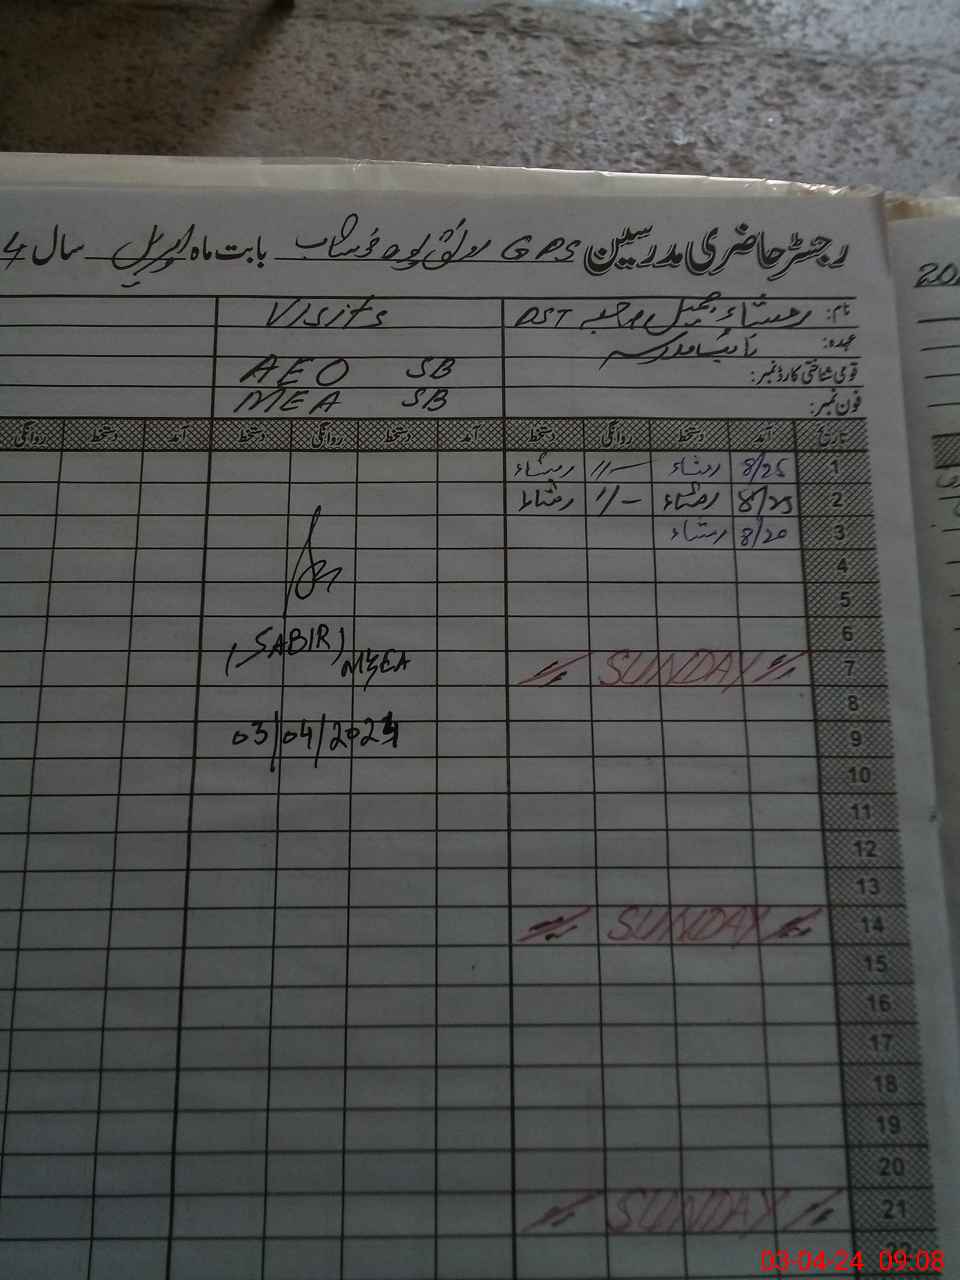 رجسٹر حاضری مدرسین GPS بابت ماہ اپریل سال 4
202
نام: رمشاء جمیل صاحبہ PST Visits
عہدہ:
قومی شناختی کارڈ نمبر: AEO SB
فون نمبر: MEA SB
تاریخ آمد دستخط روانگی دستخط آمد دستخط روانگی دستخط آمد دستخط روانگی
1 8/25 رمشاء 1/— رمشاء
2 8/25 رمشاء 1/— رمشاء
3 8/20 رمشاء
4
5
6
(SABIR)
MEA
7 SUNDAY
8
9
03/04/2024
10
11
12
13
14 SUNDAY
15
16
17
18
19
20
21 SUNDAY
22
03-04-24 09:08